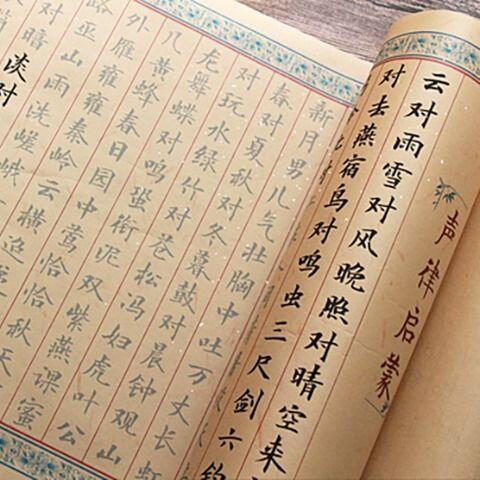 声律启蒙
云对雨雪对风晚照对晴空来
对去燕宿鸟对鸣虫三尺剑六钧
新月男儿气壮胸中吐万丈长虹
春对夏秋对冬暮鼓对晨钟观山
对玩水绿竹对苍松冯妇虎叶公
龙舞蝶对鸣蛩衔泥双紫燕课蜜
几黄蜂春日园中莺恰恰秋天
外雁雍雍秦岭云横迢
路巫山雨洗嵯峨
对暗淡对